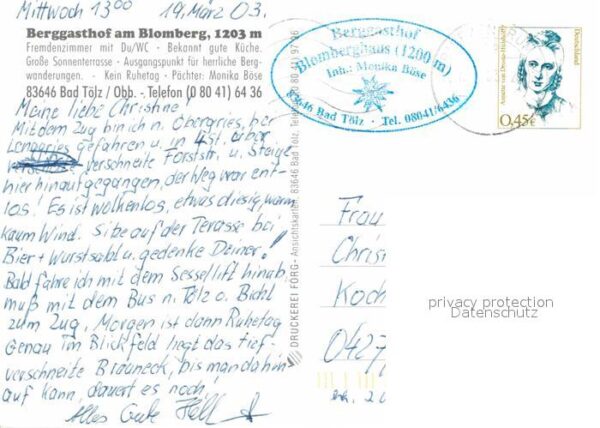 Mittwoch 13⁰⁰ 19. März 03.
Berggasthof am Blomberg, 1203 m
Fremdenzimmer mit Du/WC · Bekannt gute Küche.
Große Sonnenterrasse · Ausgangspunkt für herrliche Berg-
wanderungen. · Kein Ruhetag · Pächter: Monika Böse
83646 Bad Tölz / Obb. · Telefon (0 80 41) 64 36
Meine liebe Christine!
Mit dem Zug bin ich n. Obergries, bei
Lenggries gefahren u. in 4 St. über
verschneite Forststr. u. Steige
hier hinaufgegangen, der Weg war end-
los! Es ist wolkenlos, etwas diesig, warm
kaum Wind. Sitze auf der Terasse bei
Bier + Wurstsalat u. gedenke Deiner!
Bald fahre ich mit dem Sessellift hinab
muß mit dem Bus n. Tölz o. Bichl
zum Zug. Morgen ist dann Ruhetag
Genau im Blickfeld liegt das tief-
verschneite Brauneck, bis man da hin-
auf kann, dauert es noch!
Alles Gute
DRUCKEREI FÖRG · Ansichtskarten, 83646 Bad Tölz, Tel.
Berggasthof
Blomberghaus (1200 m)
Inh.: Monika Böse
83646 Bad Tölz · Tel. 08041/6436
Deutschland
Annette von Droste-Hülshoff
0,45€
Frau
Christ
Koch
0427
privacy protection
Datenschutz